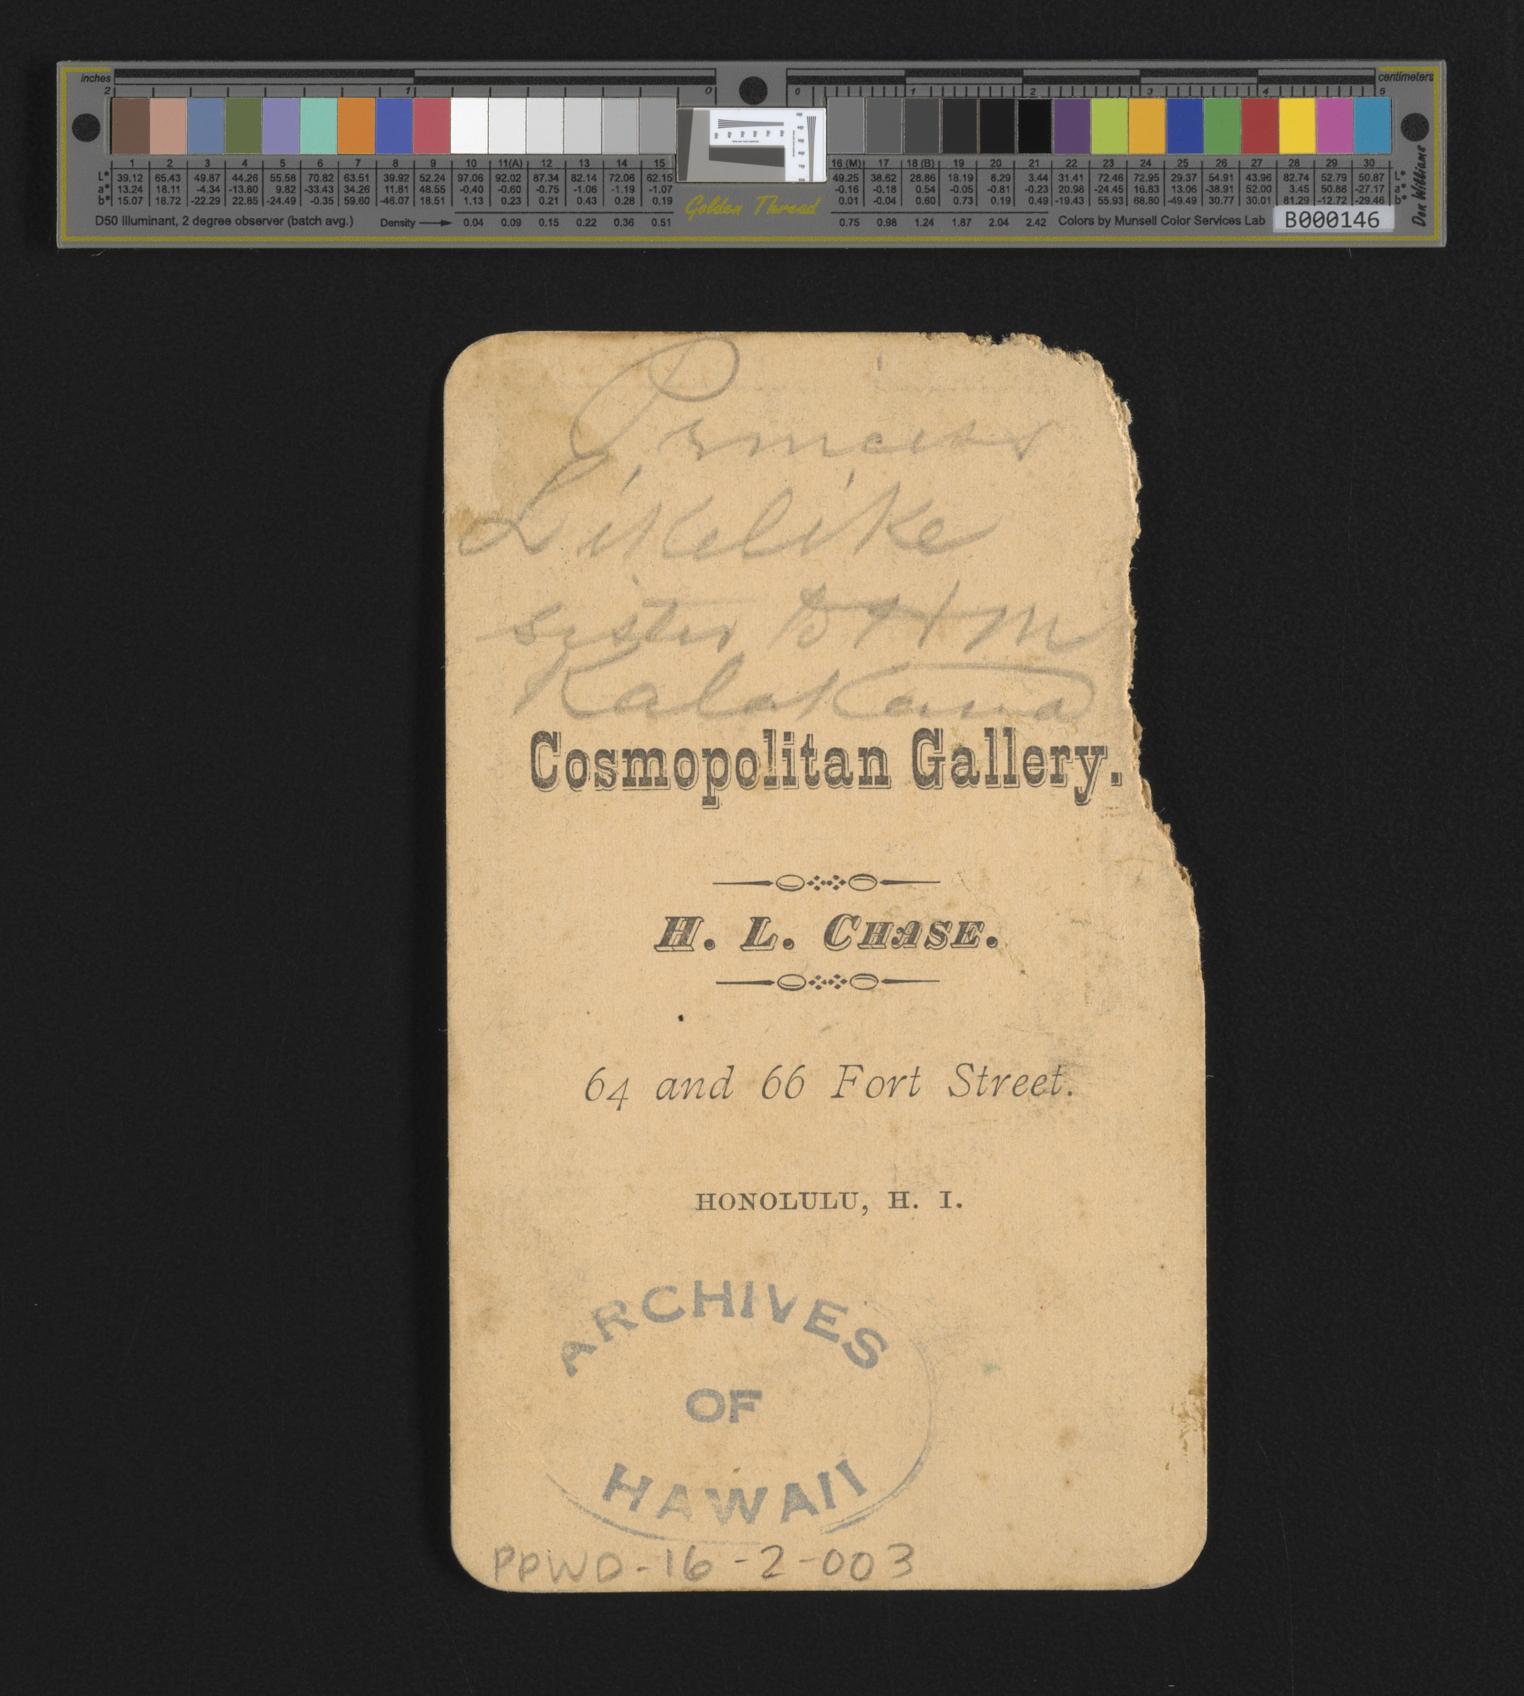 inches
centimeters
2 1 0 0 1 2 3 4 5
1 2 3 4 5 6 7 8 9 10 11(A) 12 13 14 15 16 (M) 17 18 (B) 19 20 21 22 23 24 25 26 27 28 29 30
L* 39.12 65.43 49.87 44.26 55.56 70.82 63.51 39.92 52.24 97.06 92.02 87.34 82.14 72.06 62.15 49.25 38.62 28.86 18.19 8.29 3.44 31.41 72.46 72.95 29.37 54.91 43.96 82.74 52.79 50.87 L*
a* 13.24 18.11 -4.34 -13.80 9.82 -33.43 34.26 11.81 48.55 -0.40 -0.60 -0.75 -1.06 -1.19 -1.07 -0.16 -0.18 0.54 -0.05 -0.81 -0.23 20.98 -24.45 16.83 13.06 -38.91 52.00 3.45 50.88 -27.17 a*
b* 15.07 18.72 -22.29 22.85 -24.49 -0.35 59.60 -46.07 18.51 1.13 0.23 0.21 0.43 0.28 0.19 0.01 -0.04 0.60 0.73 0.19 0.49 -19.43 55.93 68.80 -49.49 30.77 30.01 81.29 -12.72 -29.46 b*
D50 Illuminant, 2 degree observer (batch avg.) Density 0.04 0.09 0.15 0.22 0.36 0.51 Golden Thread 0.75 0.98 1.24 1.67 2.04 2.42 Colors by Munsell Color Services Lab B000146
Don Williams
Princess
Likelike
sister to H M
Kalakaua
Cosmopolitan Gallery.
H. L. CHASE.
64 and 66 Fort Street.
HONOLULU, H. I.
ARCHIVES
OF
HAWAII
PPWD-16-2-003